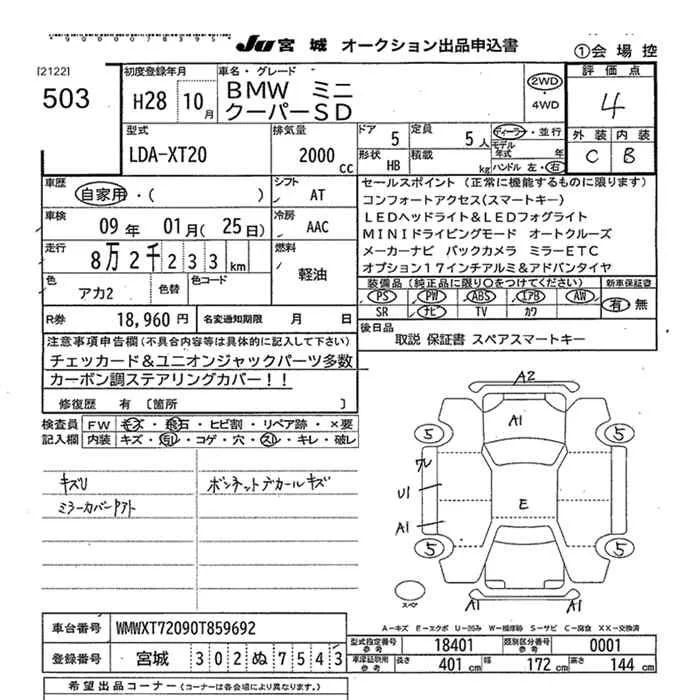 JU 宮城 オークション出品申込書
①会場控
[2122]
503
初度登録年月
H28 10月
車名・グレード
BMW ミニ
クーパーSD
2WD
4WD
評価点
4
外装 内装
C B
型式
LDA-XT20
排気量
2000 cc
ドア 5
定員 5人
形状 HB
積載 kg
ディーラー・並行
モデル年式 年
ハンドル 左・右
車歴
自家用・( )
シフト
AT
車検
09年 01月(25日)
冷房
AAC
走行
8万2千233km
燃料
軽油
色
アカ2
色替
色コード
R券 18,960円
名変通知期限 月 日
セールスポイント(正常に機能するものに限ります)
コンフォートアクセス(スマートキー)
LEDヘッドライト&LEDフォグライト
MINIドライビングモード オートクルーズ
メーカーナビ バックカメラ ミラーETC
オプション17インチアルミ&アドバンタイヤ
装備品(純正品に限り○をつけてください)
新車保証書
PS PW ABS エアB AW
SR ナビ TV カワ
有 無
後日品
取説 保証書 スペアスマートキー
注意事項申告欄(不具合内容等は具体的に記入して下さい)
チェッカード&ユニオンジャックパーツ多数
カーボン調ステアリングカバー!!
修復歴 有 〔箇所 〕
検査員記入欄
FW キズ・飛石・ヒビ割・リペア跡・×要
内装 キズ・汚レ・コゲ・穴・スレ・キレ・破レ
キズU
ボンネットデカールキズ
ミラーカバーケフト
A2
A1
5
5
U1
E
A1
5
5
スペア
A1
A1
A-キズ E-エクボ U-凹み W-補修跡 S-サビ C-腐食 XX-交換済
車台番号 WMWXT72090T859692
登録番号 宮城 302ぬ7543
型式指定番号 参考 18401
類別区分番号 参考 0001
車庫証明用 参考 長さ 401cm 幅 172cm 高さ 144cm
希望出品コーナー(コーナーは各会場により異なります。)